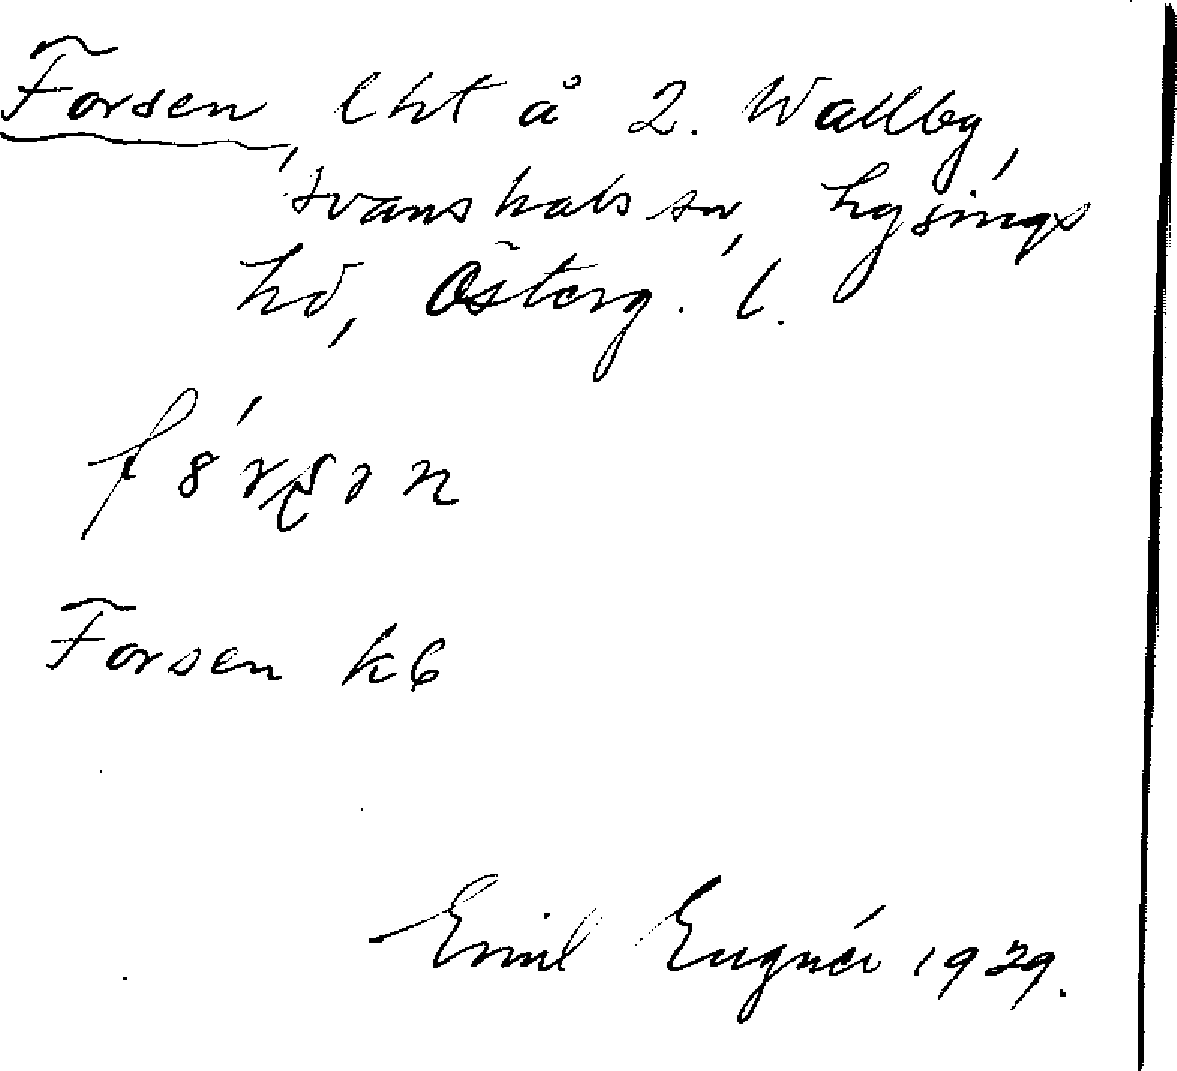 Forsen, lht å 2. Wallby,
Svanshals sn, Lysings
hd, Österg. l.
Forsen kb
Emil Eugnér 1929.